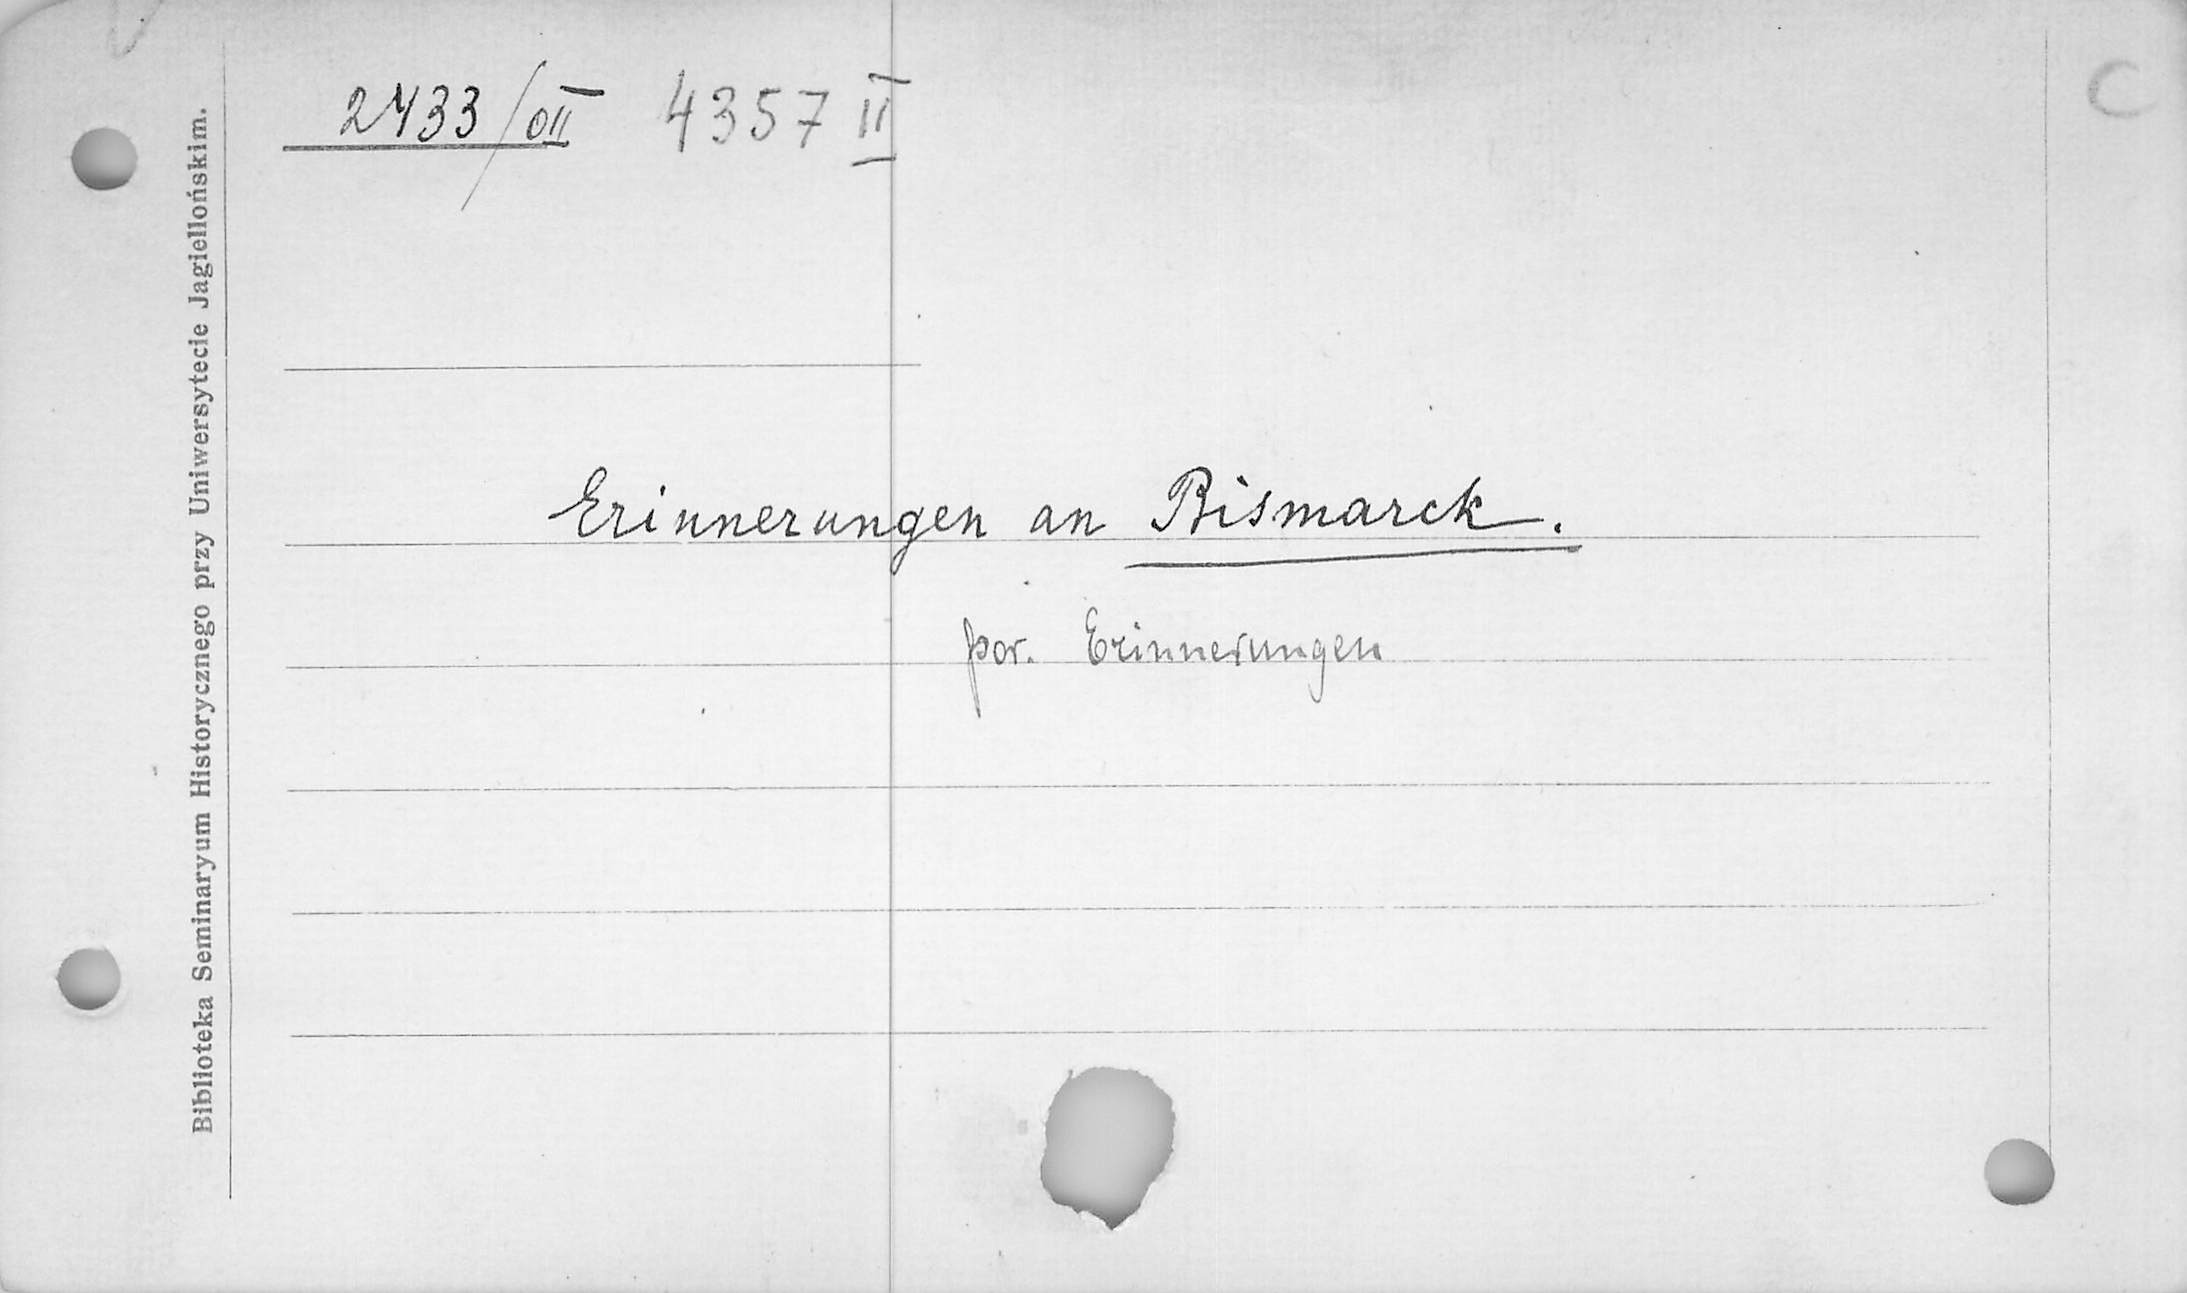 2433/0II 4357 II
Erinnerungen an Bismarck.
por. Erinnerungen
Biblioteka Seminaryum Historycznego przy Uniwersytecie Jagiellońskim.
C